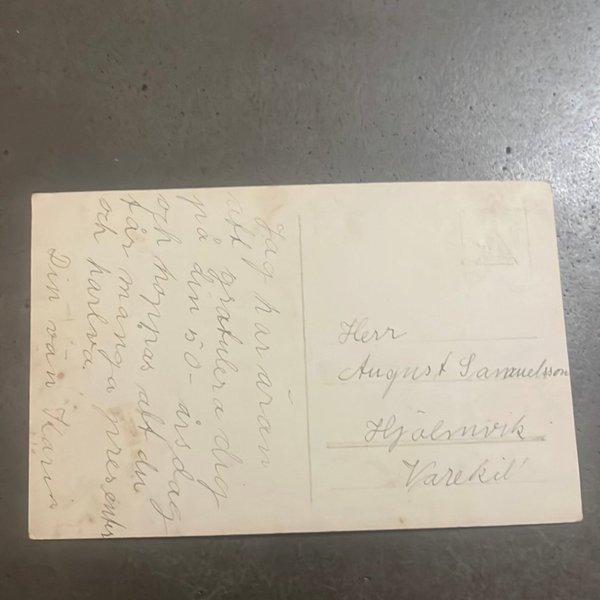 Jag har äran
att gratulera dig
på din 50-årsdag
och hoppas att du
får många presenter
och
Din vän Karin
Herr
August Samuelsson
Hjälmvik
Varekil